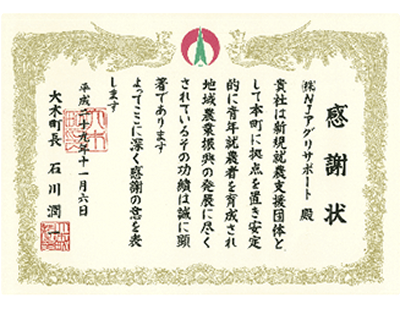 感謝状
㈱NJアグリサポート 殿
貴社は新規就農支援団体と
して本町に拠点を置き安定
的に青年就農者を育成され
地域農業振興の発展に尽く
されているその功績は誠に顕
著であります
よってここに深く感謝の意を表
します
平成二十九年十一月六日
大木町長 石川 潤